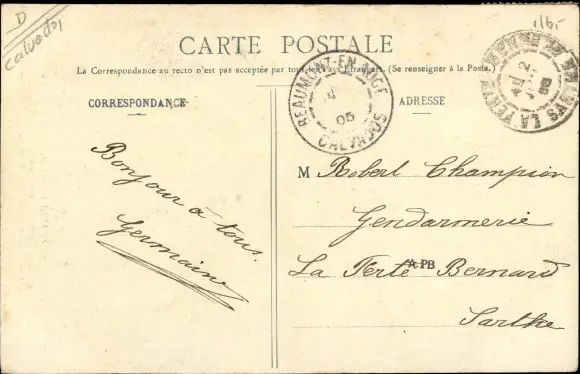 D
Calvados
1165-
CARTE POSTALE
La Correspondance au recto n'est pas acceptée par tous (Se renseigner à la Poste.
CORRESPONDANCE
ADRESSE
BEAUMONT-EN-AUGE
05
CALVADOS
LA FERTE
Bonjour à tous.
Germaine
M Robert Champion
Gendarmerie
La Ferté Bernard
PB
Sarthe